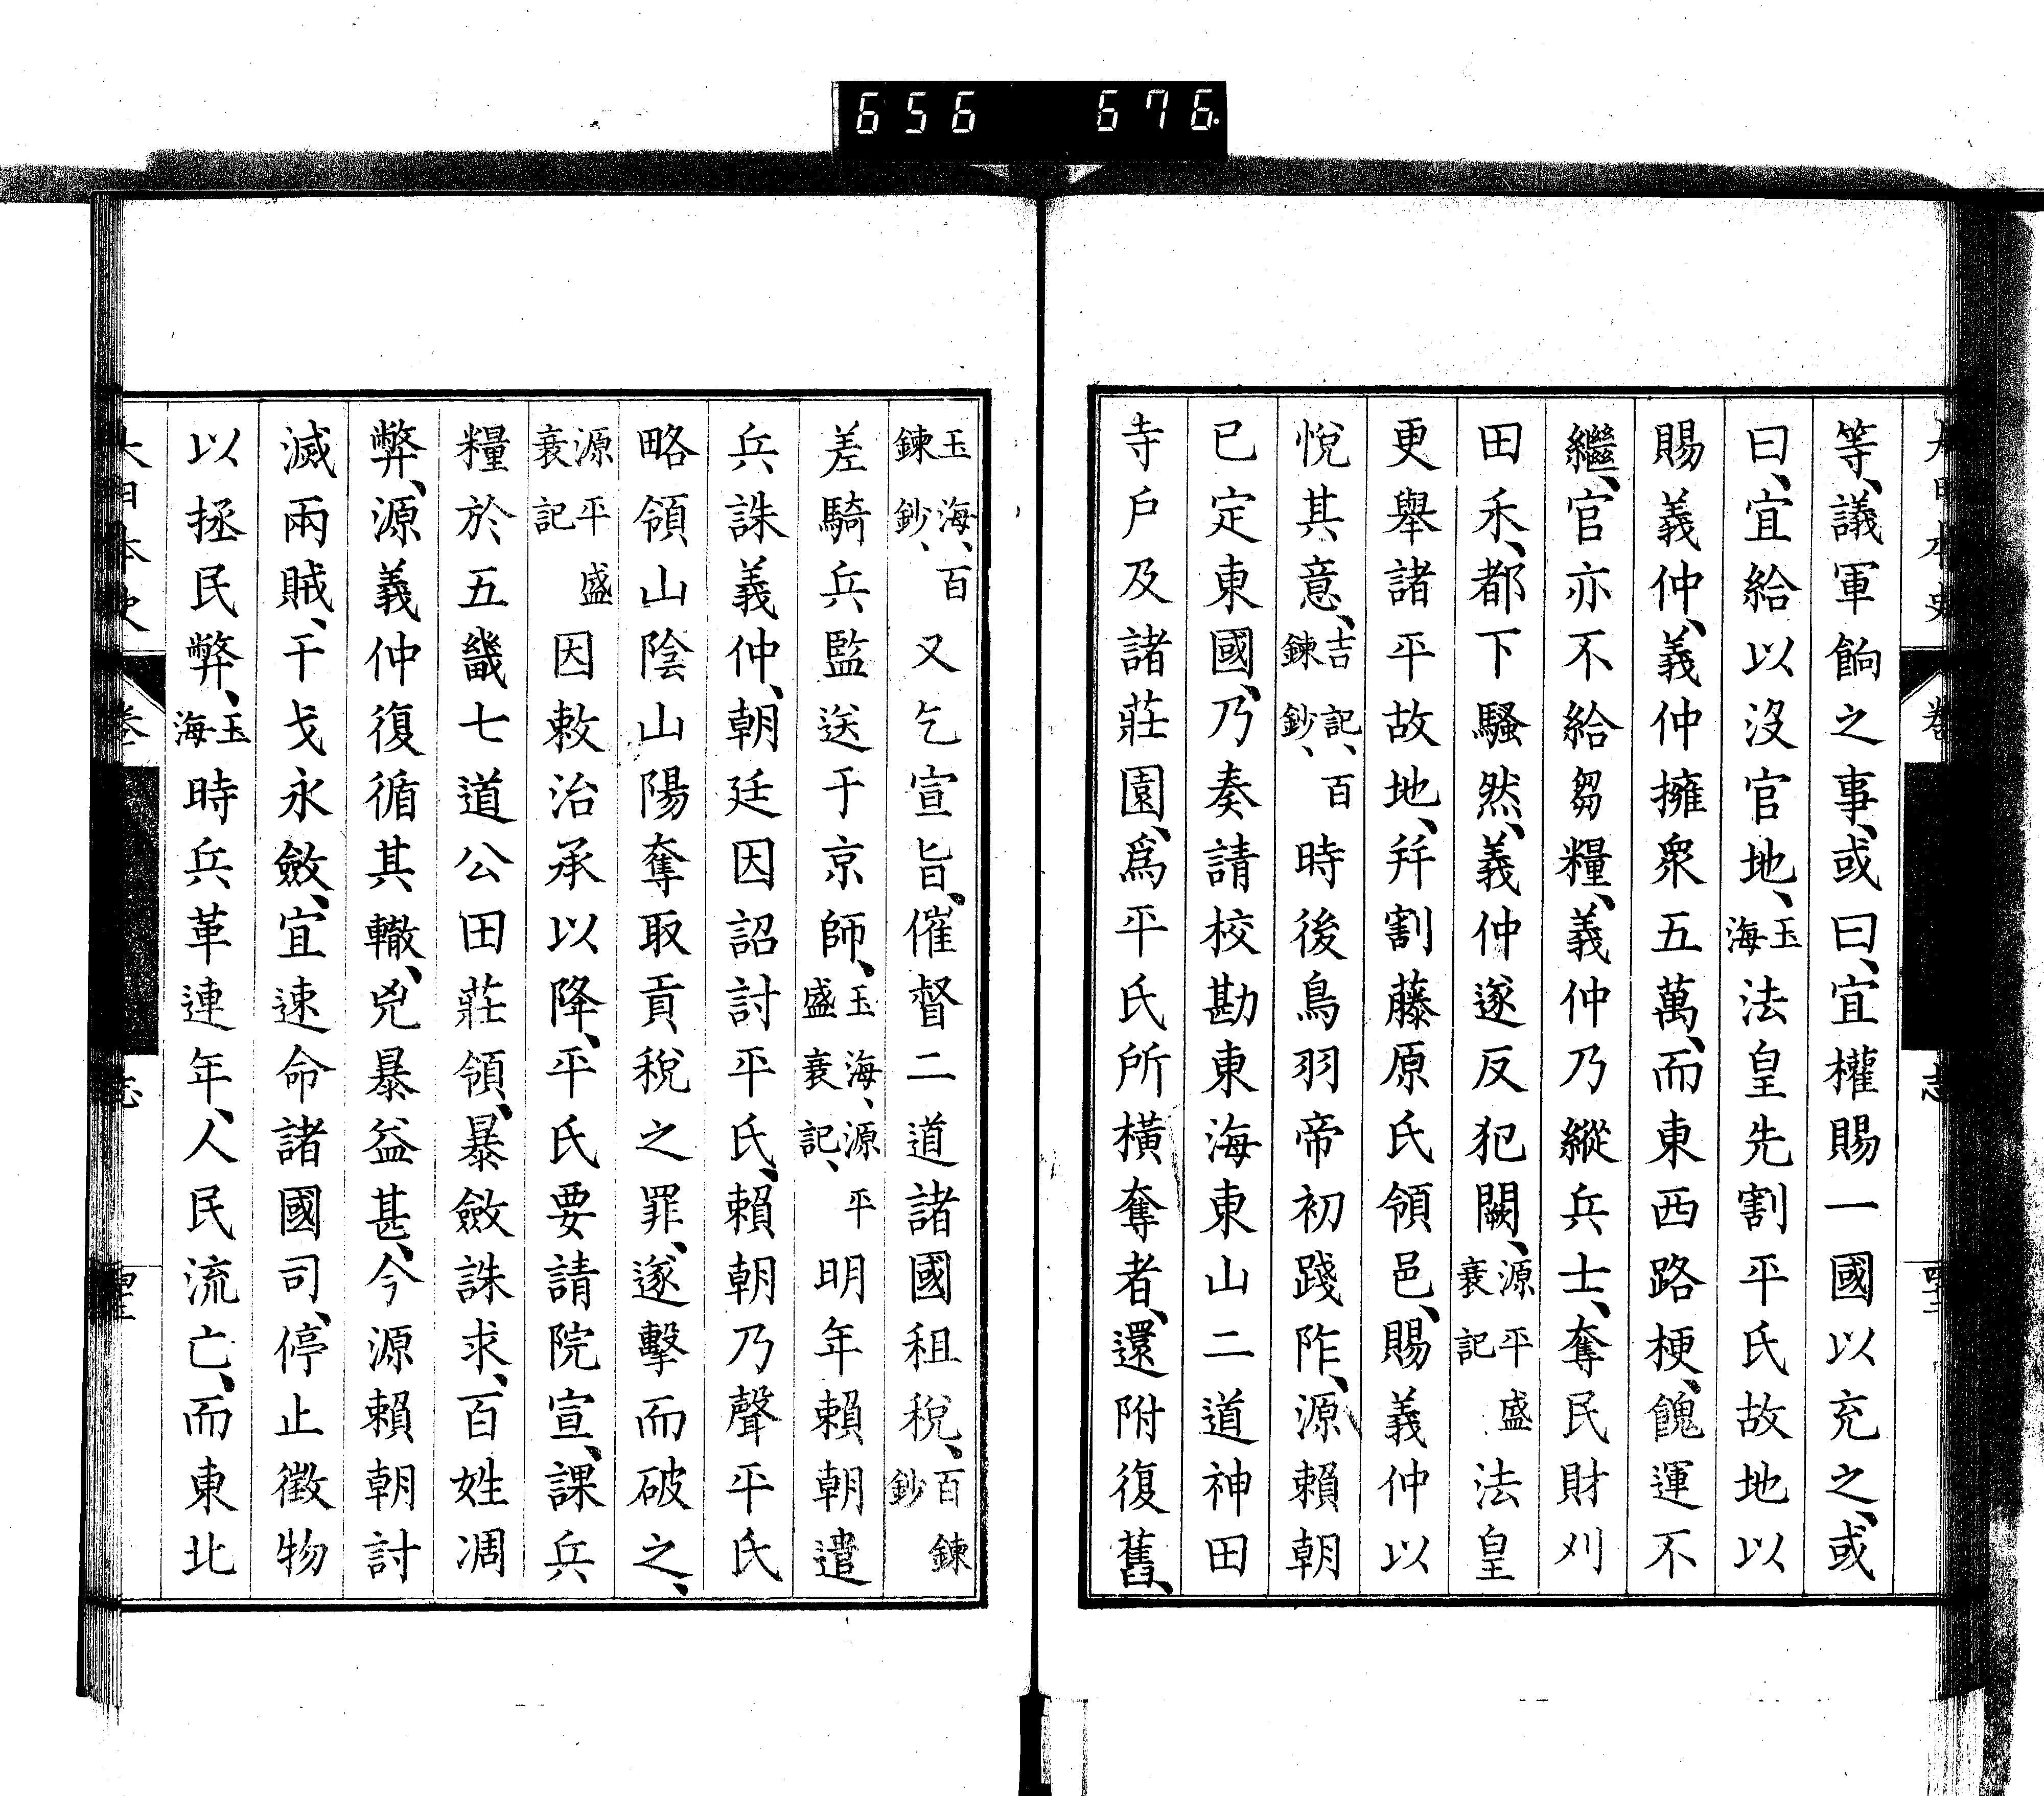 656 676
等、議軍餉之事、或曰、宜權賜一國以充之、或
曰、宜給以沒官地、玉海法皇先割平氏故地以
賜義仲、義仲擁衆五萬、而東西路梗、餽運不
繼、官亦不給芻糧、義仲乃縱兵士、奪民財刈
田禾、都下騷然、義仲遂反犯闕、源平盛衰記法皇
更舉諸平故地、幷割藤原氏領邑、賜義仲以
悅其意、吉記、百鍊鈔、時後鳥羽帝初踐阼、源賴朝
已定東國、乃奏請校勘東海東山二道神田
寺戶及諸莊園、爲平氏所橫奪者、還附復舊、
玉海、百鍊鈔、又乞宣旨、催督二道諸國租稅、百鍊鈔
差騎兵監送于京師、玉海、源平盛衰記、明年賴朝遣
兵誅義仲、朝廷因詔討平氏、賴朝乃聲平氏
略領山陰山陽奪取貢稅之罪、遂擊而破之、
源平盛衰記因敕治承以降、平氏要請院宣、課兵
糧於五畿七道公田莊領、暴斂誅求、百姓凋
弊、源義仲復循其轍、兇暴益甚、今源賴朝討
滅兩賊、干戈永斂、宜速命諸國司、停止徵物
以拯民弊、玉海時兵革連年、人民流亡、而東北
大日本史 卷 志